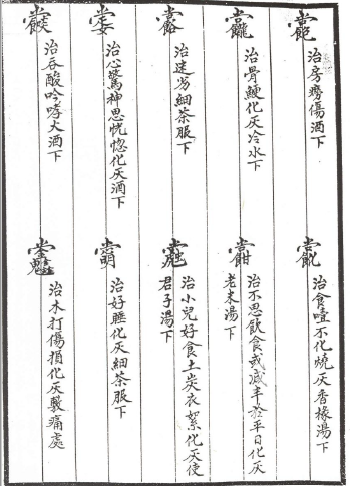 治房勞傷酒下
治骨鯁化灰冷水下
治迷劣細茶服下
治心驚神思恍惚化灰酒下
治吞酸吟哮大酒下
治食噎不化燒灰香椽湯下
治不思飲食或減半於平日化灰
老米湯下
治小兒好食土炭衣絮化灰使
君子湯下
治好睡化灰細茶服下
治木打傷損化灰敷痛處